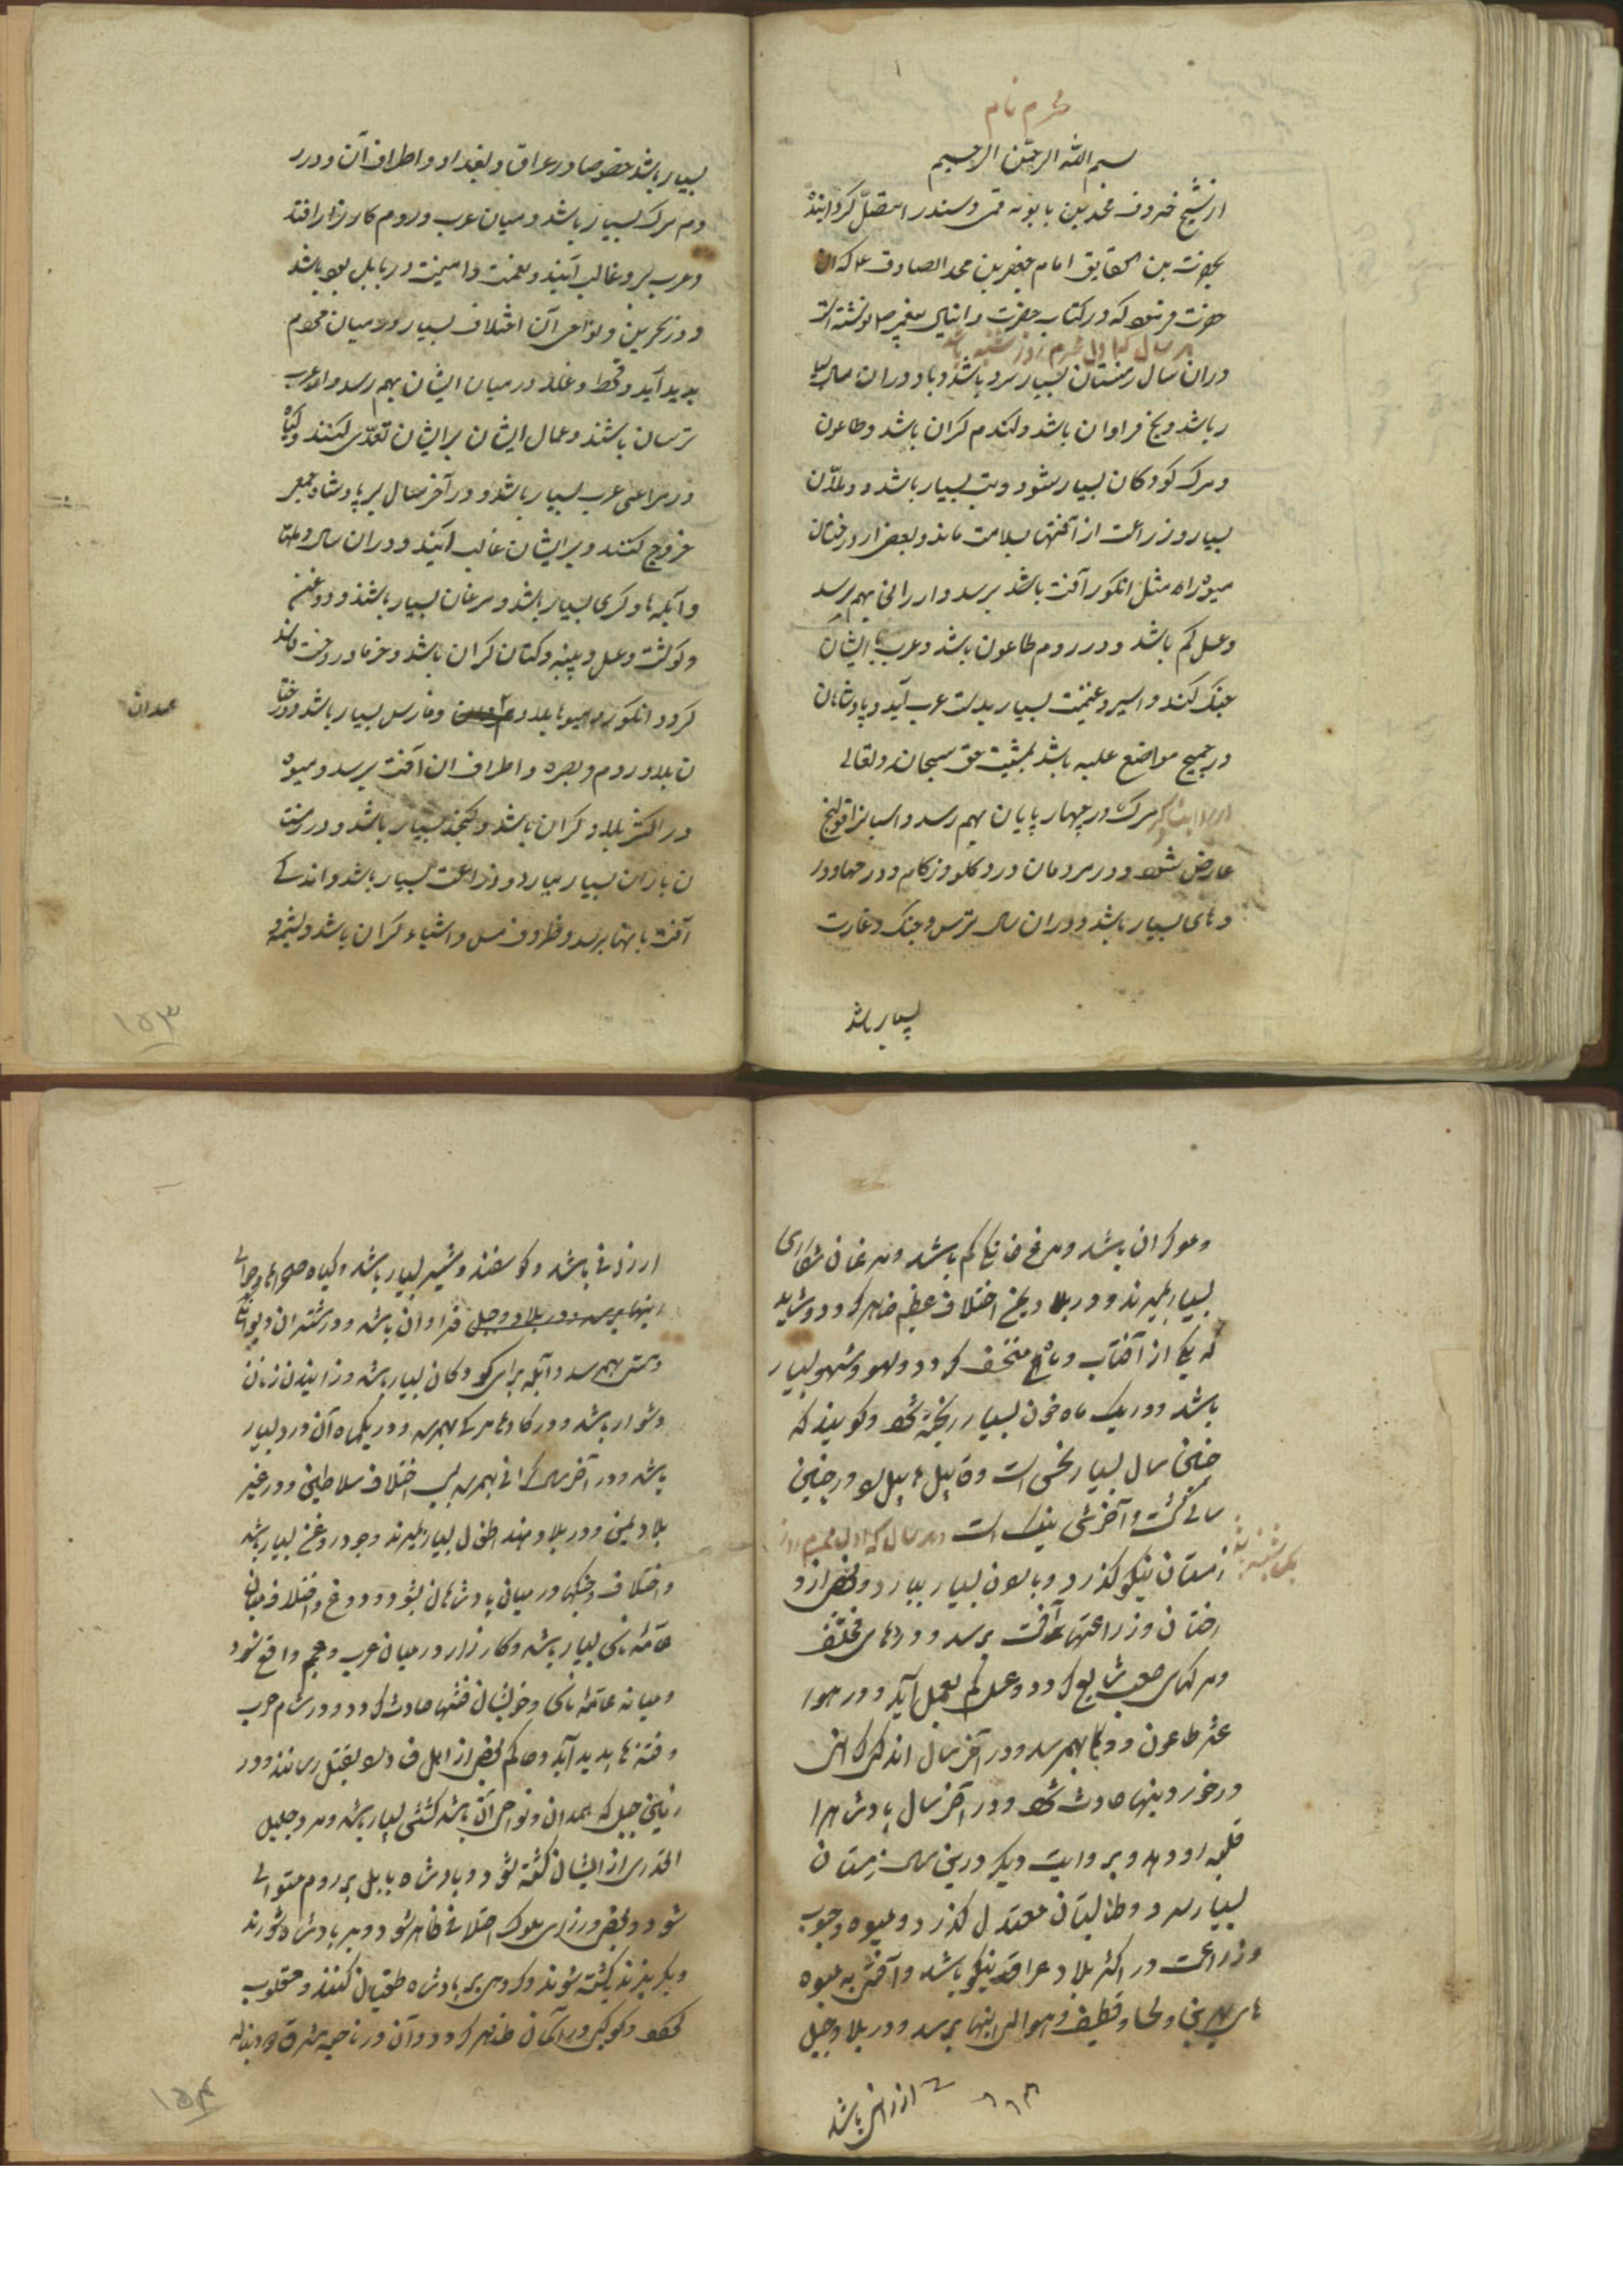 محرم نام
بسم الله الرحمن الرحیم
از شیخ محمد بن بابویه قمی و سند را متصل گردانیده
بحضرت امام جعفر بن محمد الصادق ع که آن
حضرت فرموده که در کتاب حضرت دانیال پیغمبر نوشته است
هر سال که اول محرم روز شنبه باشد
دران سال زمستان بسیار سرد باشد و باد دران سال بسیا
ر باشد و یخ فراوان باشد و گندم گران باشد و طاعون
و مرگ کودکان بسیار شود و تب بسیار باشد و
بسیار و زراعت از آفتها بسلامت ماند و بعضی از درختان
میوه را مثل انگور آفت باشد برسد و ارزانی بهم رسد
و عسل کم باشد و در روم طاعون باشد و عرب با ایشان
جنگ کند و اسیر و غنیمت بسیار بدست عرب آید و پادشاهان
در جمیع مواضع غلبه باشد بمشیت حق سبحانه و تعالی
مرگ در چهار پایان بهم رسد و اسبانرا قولنج
عارض شود و در مردمان درد گلو و زکام و در
و های بسیار باشد و دران سال ترس و جنگ و غارت
بسیار باشد
بسیار باشد خصوصا در عراق و بغداد و اطراف آن و در
دم مرگ بسیار باشد و میان عرب و روم کارزار افتد
و عرب بر و غالب آیند و نعمت و امنیت در بابل بود باشد
و در بحرین و نواحی آن اختلاف بسیار در میان مردم
پدید آید و قحط و غلا در میان ایشان بهم رسد و عرب
ترسان باشند و عمال ایشان بر ایشان تعدی کنند و گیاه
در مراعی عرب بسیار باشد و در آخر سال بر پادشاه جمعی
خروج کنند و بر ایشان غالب آیند و دران سال
و آبله و گری بسیار باشد و مرغان بسیار باشند و روغن
و گوشت و عسل و پنبه و کتان گران باشد و خرما در درخت
گردد انگور و میوها بلاد و فارس بسیار باشد و درختا
همدان
ن بلاد روم و بصره و اطراف ان آفت برسد و میوه
در اکثر بلاد گران باشد و کنجد بسیار باشد و در زمستا
ن باران بسیار ببارد و زراعت بسیار باشد و اندکی
آفت بانها برسد و ظروف مس و اشیاء گران باشد و پشم و
۱۵۳
و مو گران باشد و مرغ خانگی کم باشد و مرغان شکاری
بسیار بمیرند و در بلاد بلخ اختلاف عظیم ظاهر گردد و شاید
که یکی از آفتاب و ماه منخسف گردد و لهو و سهو بسیار
باشد و در یک ماه خون بسیار ریخته شود و گویند که
چنین سال بسیار نحس است و قابیل هابیل را در چنین
سالی کشت و آخرش نیک است و هر سال که اول محرم روز
یک شنبه باشد
زمستان نیکو گذرد و باران بسیار ببارد و بعضی از د
رختان و زراعتها آفت برسد و دردهای مختلف
و مرگهای صعب شایع گردد و عسل کم بعمل آید و در هوا
طاعون و وبا بهم رسد و در آخر سال اندکی گرانی
در خوردنیها حادث شود و در آخر سال پادشاه را
غلبه رو دهد و بروایت دیگر درین سال زمستان
بسیار سرد و تابستان معتدل گذرد و میوه و حبوب
و زراعت در اکثر بلاد عراق نیکو باشد و آفتی به میوه
های بحرین و لحسا و قطیف و حوالی اینها برسد و در بلاد جبل
ارزانی باشد
ارزانی باشد و گوسفند و شیر بسیار باشد و گیاه صحراها و حوالی
اینها برسد و در بلاد و جبل فراوان باشد و در شتران دیوانگی
و مستی بهم رسد و آبله برای کودکان بسیار باشد و زاییدن زنان
دشوار باشد و در گاوها مرگ بهم رسد و در یکماه آن درد بسیار
باشد و در آخر سال گرانی بهم رسد بسبب اختلاف سلاطین و در غیر
بلاد یمن و در بلاد هند اطفال بسیار بمیرند و جو و روغن بسیار باشد
و اختلاف و جنگها در میان پادشاهان بشود و دروغ و اختلاف میان
عامه ناس بسیار باشد و کارزار در میان عرب و عجم واقع شود
و میانه عامه ناس و خویشان فتنها حادث گردد و در شام حرب
و فتنه ها پدید آید و حاکم بعضی از اهل فساد را بقتل رساند و در
زمین جبل که همدان و نواحی آن باشد کشتنی بسیار باشد و مرد جلیل
القدری از ایشان کشته شود و پادشاه بابل بر روم مستولی
شود و بعضی وزرای ملوک اختلافی ظاهر شود و بر پادشاه شورند
و بگریزند یا کشته شوند و گروهی بر پادشاه طغیان کنند و مغلوب
شوند و کوکبی در آسمان ظاهر گردد و آن در ناحیه مشرق و دنباله
۱۵۴